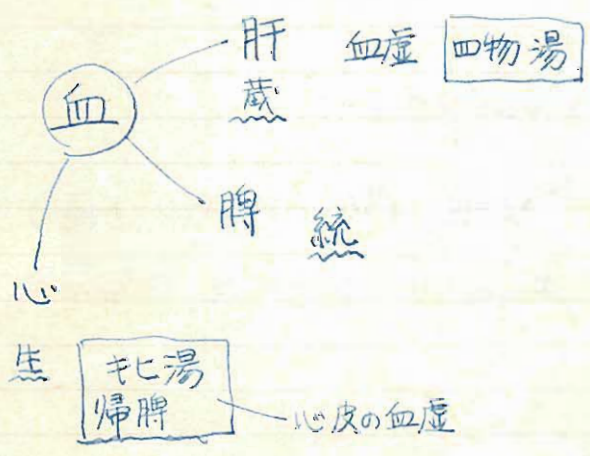 肝 血虚 四物湯
蔵
血
脾 統
心
生
キヒ湯
帰脾
心皮の血虚